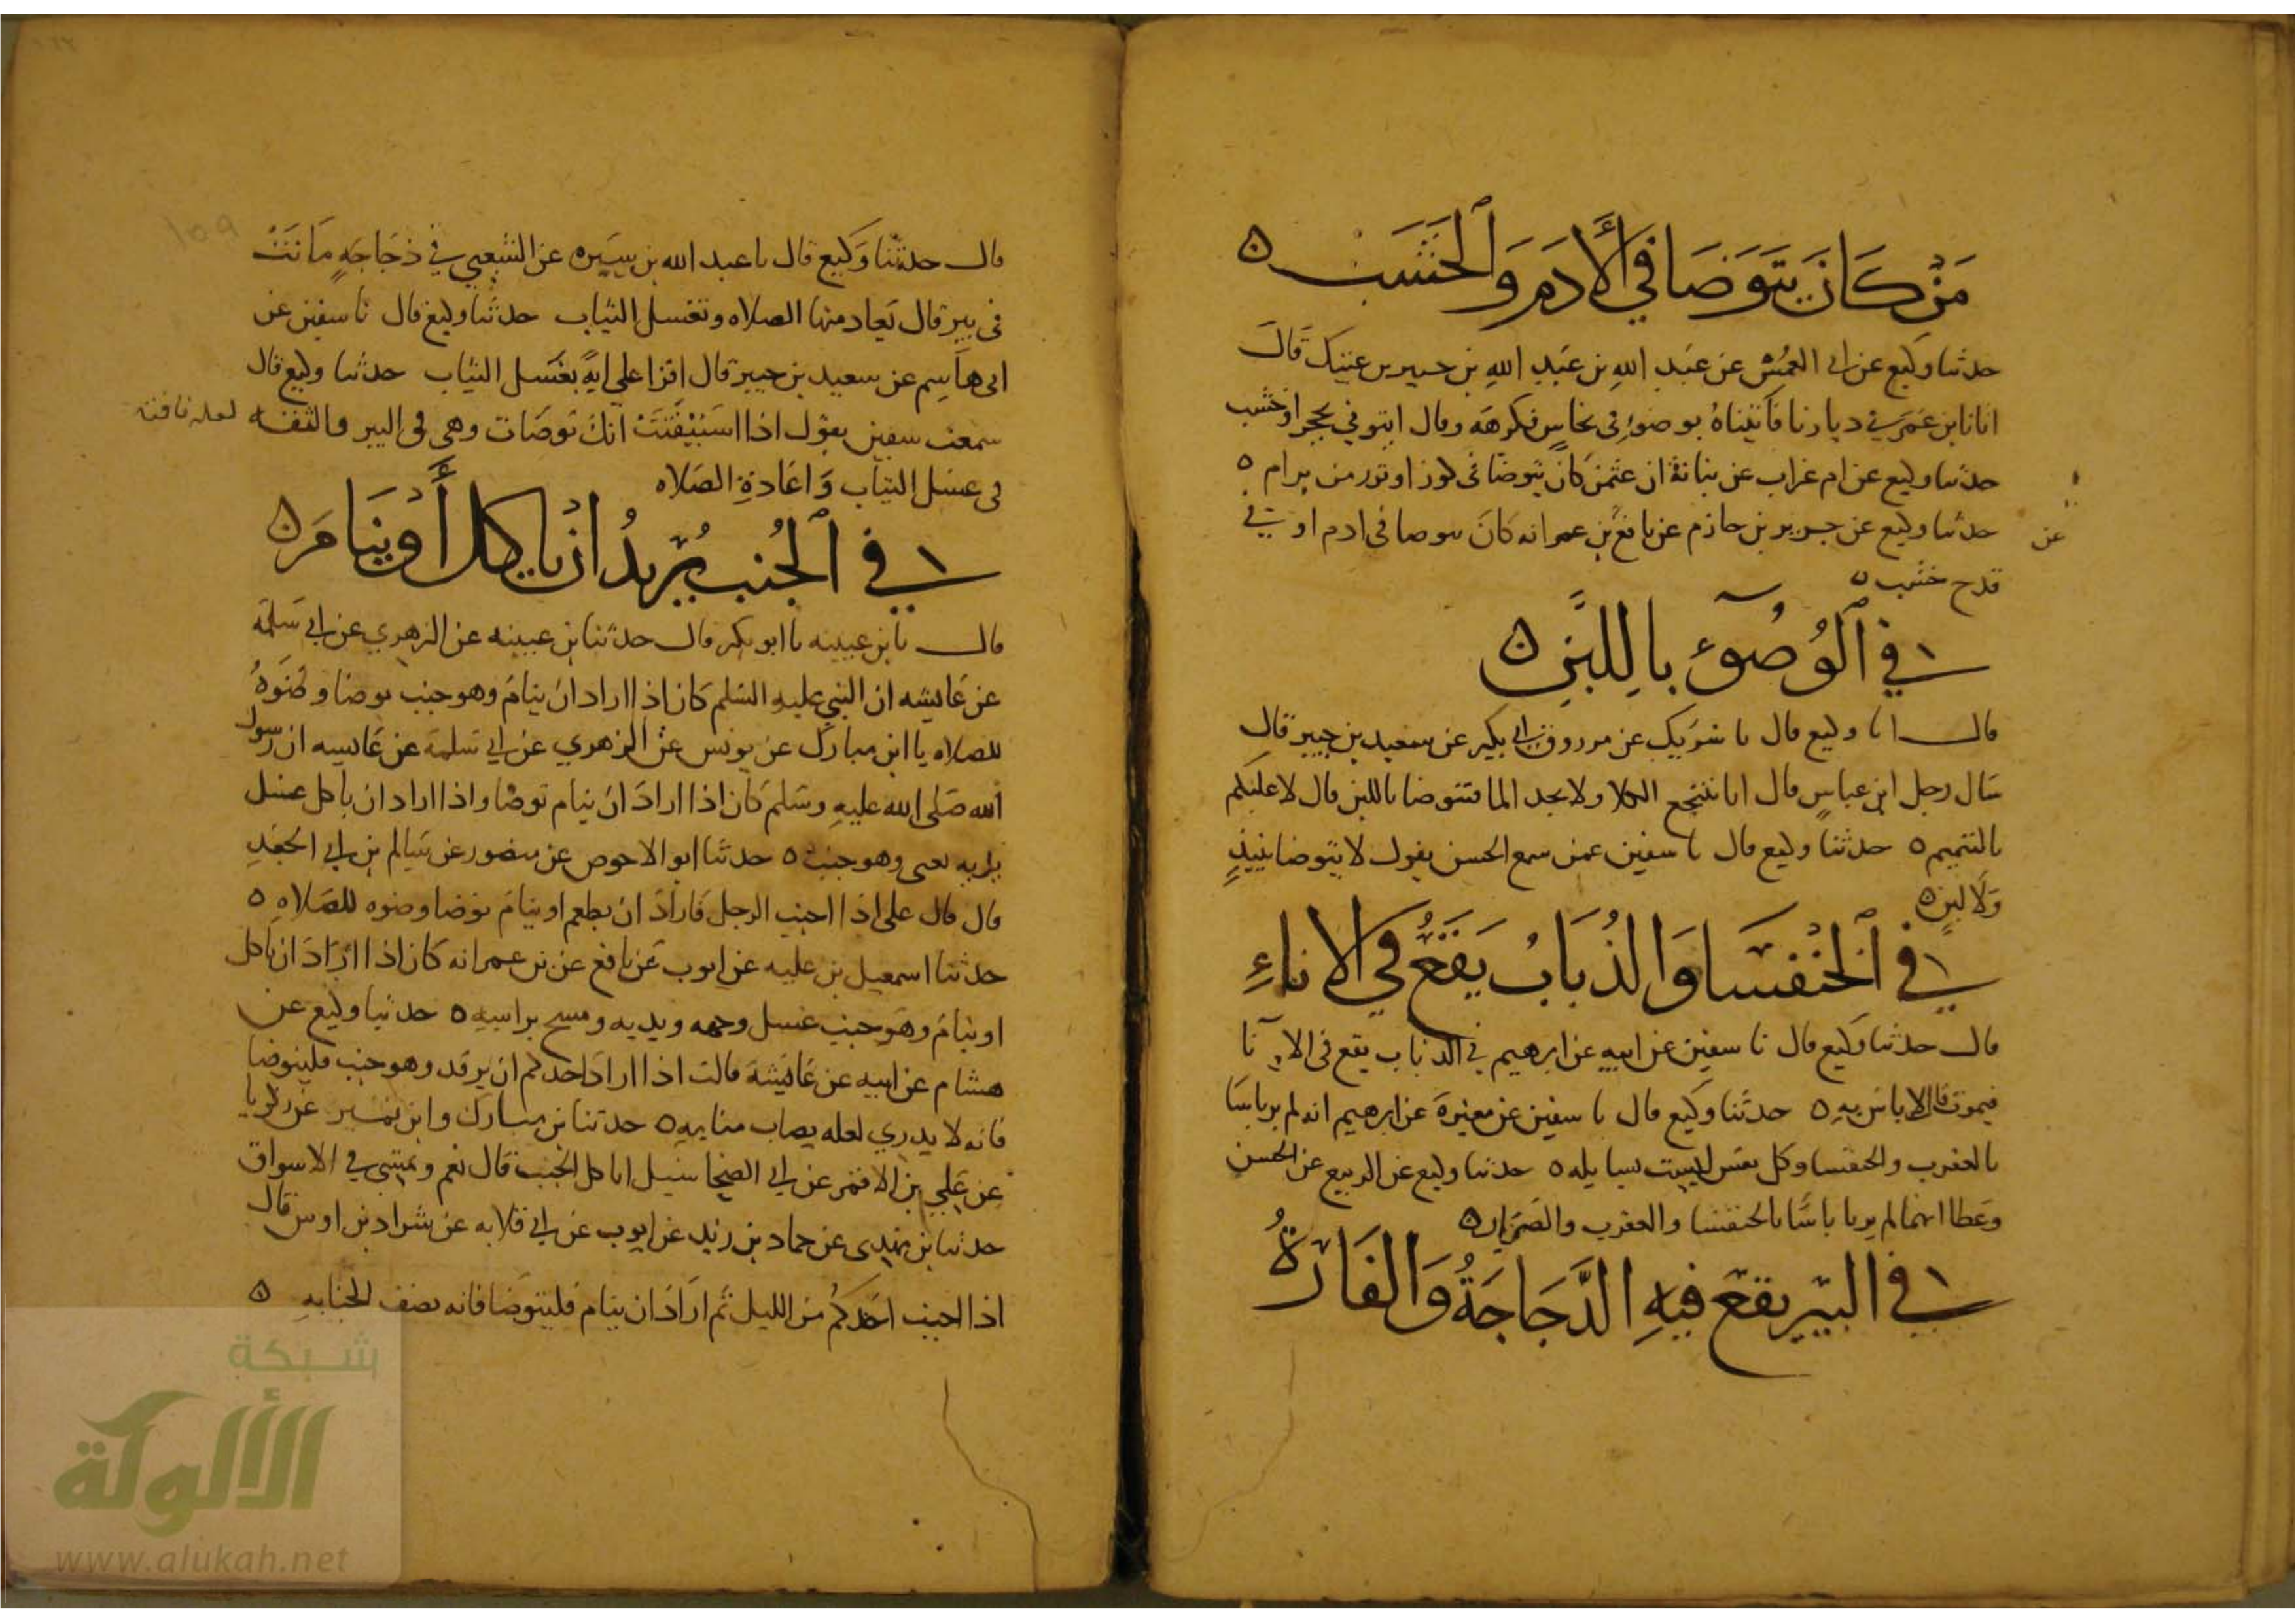 مَنْ كَانَ يَتَوَضَا فِي الْأَدَمِ وَالْخَشَبِ ه
حدثنا وكيع عن ابي العميس عن عبد الله بن عبد الله بن جبير بن عتيك قال
اتانا ابن عمر في ديارنا فاتيناه بوضوء في نحاس فكرهه وقال ايتوني بحجر او خشب
حدثنا وكيع عن ام غراب عن بنانة ان عثمن كان يتوضا في كوز او تور من برام ه
حدثنا وكيع عن جرير بن حازم عن نافع بن عمر انه كان يتوضا في ادم او في
عن
قدح خشب ه
في الْوُضُوءِ بِاللَّبَنِ ه
قال انا وكيع قال نا شريك عن مرزوق ابي بكير عن سعيد بن جبير قال
سال رجل ابن عباس قال انا ننتجع الكلا ولا نجد الما فنتوضا باللبن قال لا عليكم
بالتيمم ه حدثنا وكيع قال نا سفين عمن سمع الحسن يقول لا يتوضا بنبيذ
ولا لبن ه
في الْخُنْفَسَا وَالذُّبَابُ يَقَعُ فِي الْاِنَاءِ
قال حدثنا وكيع قال نا سفين عن ابيه عن ابرهيم في الذباب يقع في الانا
فيموت قال لا باس به ه حدثنا وكيع قال نا سفين عن مغيرة عن ابرهيم انه لم ير باسا
بالعقرب والخنفسا وكل نفس ليست بسايله ه حدثنا وكيع عن الربيع عن الحسن
وعطا انهما لم يريا باسا بالخنفسا والعقرب والصرار ه
في البئر يقع فيهِ الدَّجَاجَةُ وَالْفَارَةُ
قال حدثنا وكيع قال نا عبد الله بن سبره عن الشعبي في دجاجة ماتت
في بير قال تعاد منها الصلاه وتغسل الثياب حدثنا وكيع قال نا سفين عن
ابي هاشم عن سعيد بن جبير قال اقرا علي اية بغسل الثياب حدثنا وكيع قال
سمعت سفين يقول اذا استيقنت انك توضات وهي في البير والثقه
لعله فافته
في غسل الثياب واعادة الصلاه
في الْجُنُبِ يُرِيدُ اَنْ يَاكل أَوْ يَنَامَ ه
قال نا بن عيينه نا ابو بكر قال حدثنا بن عيينه عن الزهري عن ابي سلمة
عن عايشه ان النبي عليه السلم كان اذا اراد ان ينام وهو جنب توضا وضوه
للصلاه نا ابن مبارك عن يونس عن الزهري عن ابي سلمة عن عايشه ان رسول
الله صلى الله عليه وسلم كان اذا اراد ان ينام توضا واذا اراد ان ياكل غسل
يديه يعني وهو جنب ه حدثنا ابو الاحوص عن منصور عن سالم بن ابي الجعد
قال قال علي اذا اجنب الرجل فاراد ان يطعم او ينام توضا وضوه للصلاه ه
حدثنا اسمعيل بن عليه عن ايوب عن نافع عن بن عمر انه كان اذا اراد ان ياكل
او ينام وهو جنب غسل وجهه ويديه ومسح براسه ه حدثنا وكيع عن
هشام عن ابيه عن عايشة قالت اذا اراد احدكم ان يرقد وهو جنب فليتوضا
فانه لا يدري لعله يصاب منامه ه حدثنا بن مبارك وابن نمير عن زكريا
عن علي بن الاقمر عن ابي الضحا سيل اياكل الجنب قال نعم ويمشي في الاسواق
حدثنا بن مهدي عن حماد بن زيد عن ايوب عن ابي قلابه عن شداد بن اوس قال
اذا اجنب احدكم من الليل ثم اراد ان ينام فليتوضا فانه نصف الجنابه ه
شبكة
الألوكة
www.alukah.net